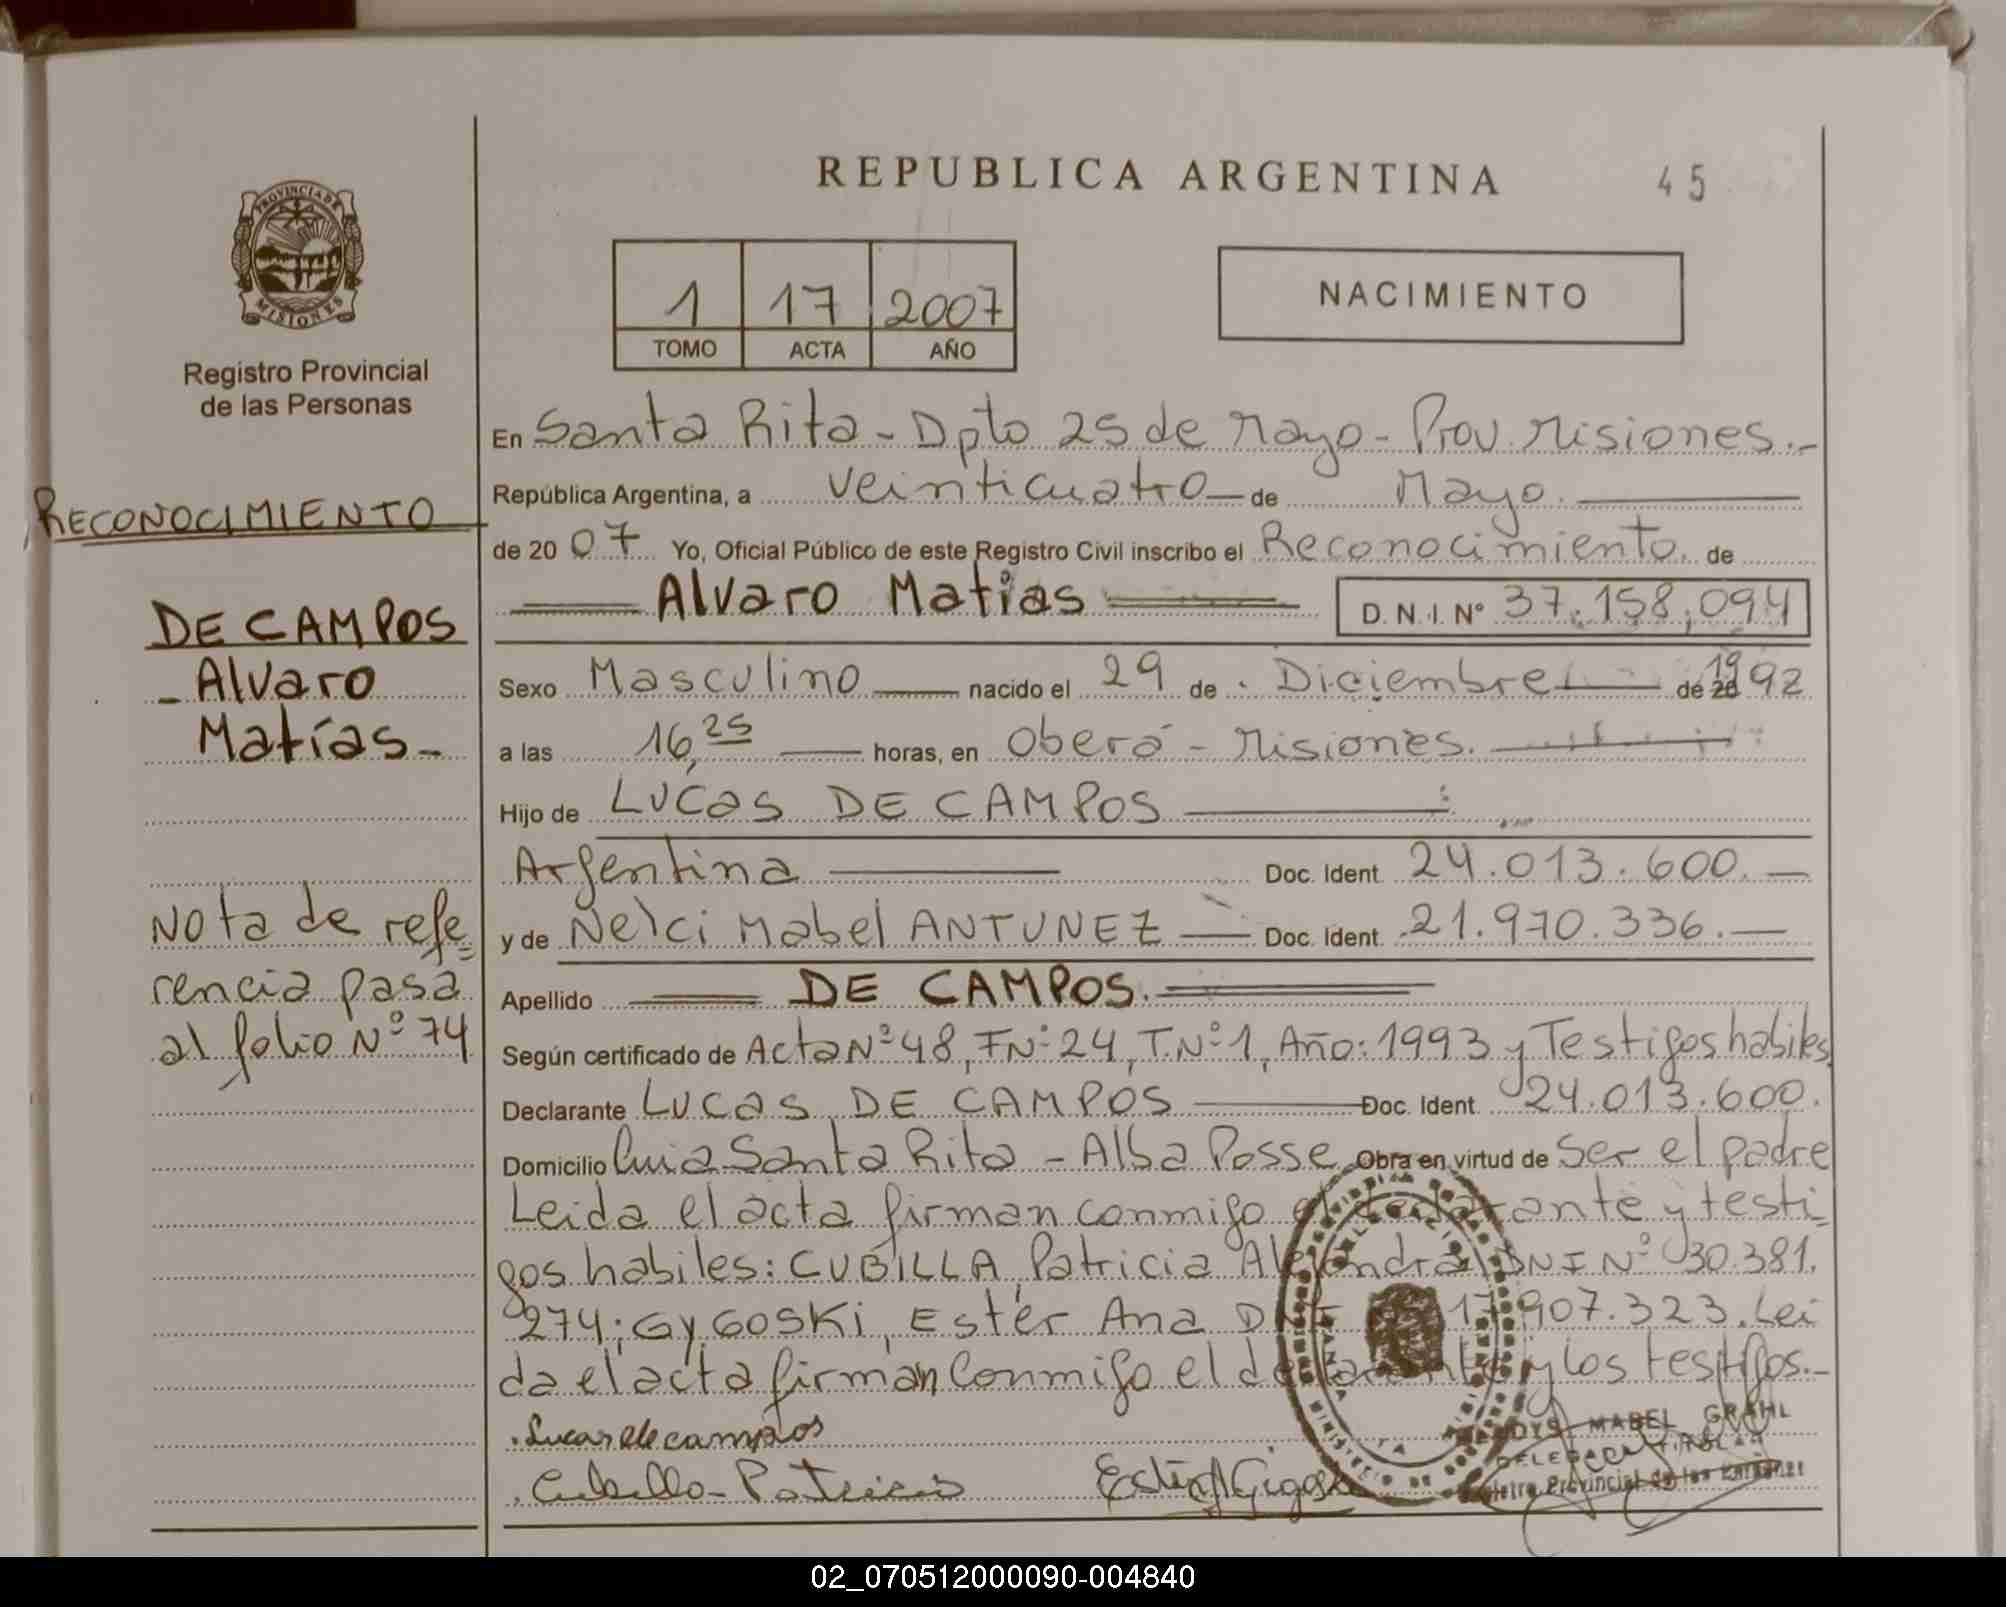 REPUBLICA ARGENTINA
45
PROVINCIA DE
MISIONES
Registro Provincial
de las Personas
1 17 2007
TOMO ACTA AÑO
NACIMIENTO
RECONOCIMIENTO
DE CAMPOS
- Alvaro
Matías -
Nota de refe=
rencia pasa
al folio Nº 74
En Santa Rita - Dpto 25 de Mayo - Prov. Misiones.-
República Argentina, a veinticuatro de Mayo.
de 20 07 Yo, Oficial Público de este Registro Civil inscribo el Reconocimiento de
Alvaro Matias D.N.I. Nº 37.158.094
Sexo Masculino nacido el 29 de Diciembre de 1992
a las 16,25 horas, en Oberá - Misiones.
Hijo de Lucas DE CAMPOS
Argentina Doc. Ident. 24.013.600.
y de Nelci Mabel ANTUNEZ Doc. Ident. 21.970.336.
Apellido DE CAMPOS.
Según certificado de Acta Nº 48, F Nº 24, T. Nº 1, Año: 1993 y Testigos habiles
Declarante Lucas DE CAMPOS Doc. Ident. 24.013.600.
Domicilio Santa Rita - Alba Posse Obra en virtud de ser el padre
Leida el acta firman conmigo el declarante y testi=
gos habiles: CUBILLA, Patricia Alejandra DNI Nº 30.381.
274; GYGOSKI, Ester Ana 17.907.323. Lei
da el acta firman conmigo el declarante y los testigos.-
Lucas de campos
Cubilla - Patricia
MABEL GRAHL
DELEGADA TITULAR
Provincial de las Personas
02_070512000090-004840